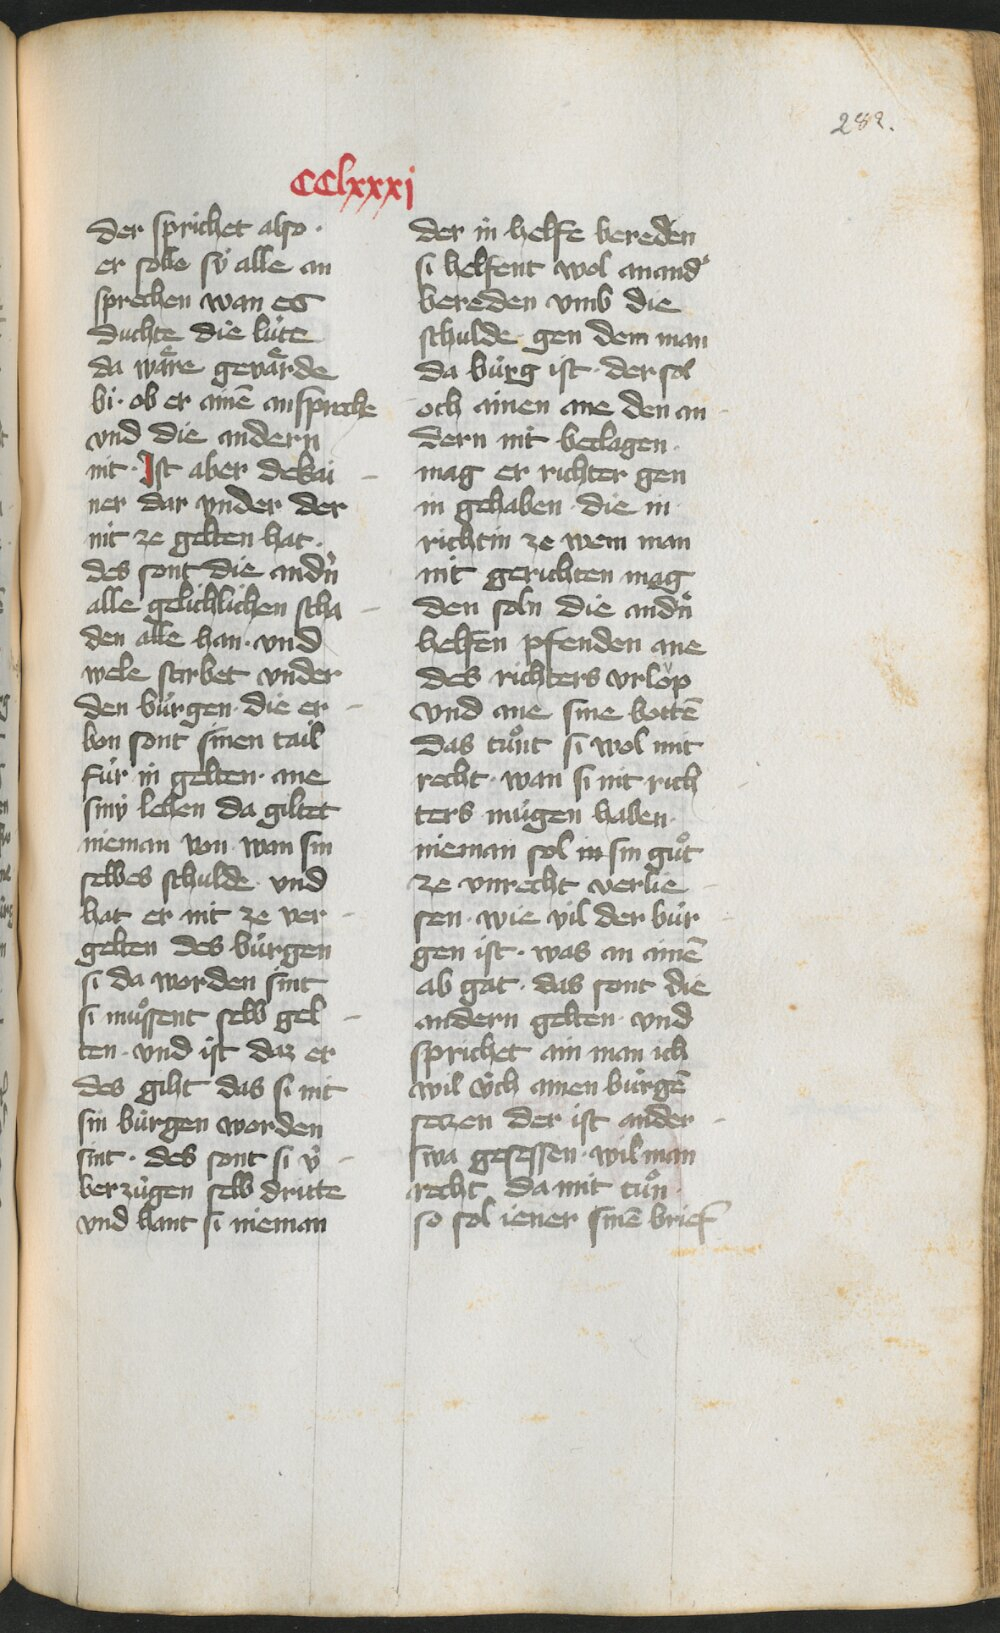 282.
CClxxxj
der sprichet also ·
er solle sÿ alle an
sprechen wan es
duchte die lúte
da wåre gevårde
bi · ob er ainē anspreche
vnd die andern
nit · Ist aber dekai -
ner dar vnder der
nit ze gelten hat ·
des sont die andn̓
alle gelichlichen scha -
den alle han · vnd
wele stirbet vnder
den búrgen · die er -
bon sont sinen tail
fúr in gelten · ane
sinÿ lehen da giltet
nieman von · wan sin
selbes schulde · vnd
hat er nit ze ver -
gelten des búrgen
si da worden sint
si mů̊ssent selb gel -
ten · vnd ist daz er
des giht das si nit
sin búrgen worden
sint · des sont si v̓ -
berzúgen selb dritte
vnd hant si nieman
der in helfe bereden
si helfent wol anand᾽
bereden vmb die
schulde · gen dem man
da búrg ist · der sol
och ainen ane den an -
dern nit beclagen ·
mag er richter gen
in gehaben · die in
richtin ze wem man
nit gerichten mag
den soln die andn̓
helfen pfenden ane
des richters vrlop
vnd ane sine bottē
das tůnt si wol mit
recht · wan si nit rich
ters múgen haben ·
nieman sol in sin gůt
ze vnrecht verlie -
sen · wie vil der búr -
gen ist · was an ainē
ab gat · das sont die
andern gelten · vnd
sprichet ain man ich
wil v́ch ainen búrgē
setzen der ist ander -
swa gesessen · wil man
recht da mit tůn ·
so sol iener sinē brief